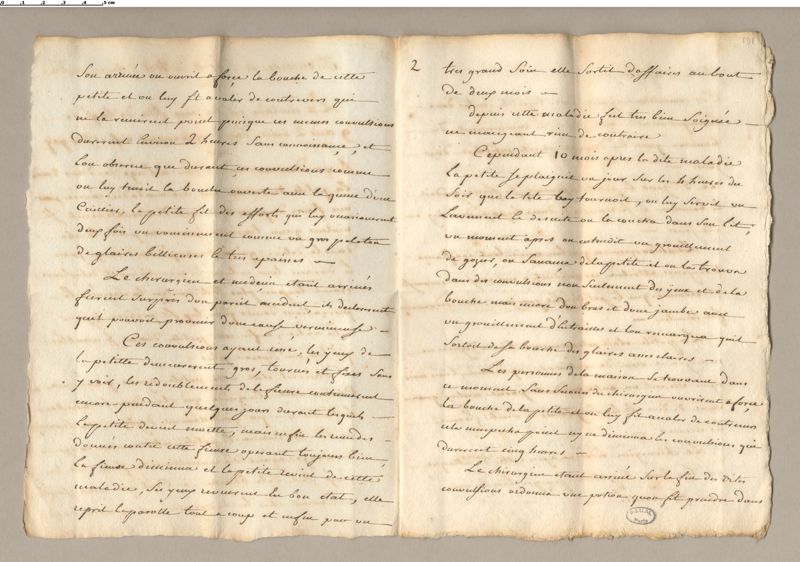 Son arivée on ouvrit a force la bouche de cette
petite et on luy fit avaler du contrevers qui
ne la remirent point puisque ces memes convulsions
durerent Environ 2 heures Sans connoissance, et
Lon observa que durant ces convulsions comme
on luy tenoit la bouche ouverte avec la queue d'une
Cuillier, la petite fit des efforts qui luy
deux fois un vomissement comme un gros peloton
de glaires bellieuses et tres epaisses —
Le chirurgien et medecin etant arrivés
furent Surpris d'un pareil accident, ils declarerent
quil pouvoit provenir d'une cause vermineuse —
Ces convulsions ayant cessé, les yeux de
la petitte demeurerent gros, tournés et fixes Sans
y voir, les redoublements de la fievre continuerent
encore pendant quelques jours durant lesquels —
la petite devint muette, mais enfin les remedes
donnés contre cette fievre operant toujours bien,
la fievre diminua et la petite revint de cette
maladie, Ses yeux revinrent en bon etat, elle
reprit la parolle tout a coup et enfin par un
2
tres grand Soin elle Sortit d'affaires au bout
de deux mois —
depuis cette maladie fut tres bien Soignée —
ne mangeant rien de contraire
Cependant 10 mois apres la dite maladie
la petite Se plaignit un jour Sur les 4 heures du
Soir que la tete luy tournoit, on luy Servit un
Lavement la dessus on la coucha dans Son lit,
un moment apres on entendit un grouillement
de gozier, on S'avança de la petite et on la trouva
dans des convulsions non Seulement des yeux et de la
bouche mais encore d'un bras et d'une jambe avec
un grouillement d'Entrailles et l'on remarqua quil
Sortoit de Sa bouche des glaires assés claires —
Les personnes de la maison Se trouvant dans
ce moment Sans Secours du chirurgien ouvrirent a force
la bouche de la petite et on luy fit avaler du
cela n'empecha point ny ne diminua les convulsions qui
durerent cinq heures —
Le chirurgien etant arrivé Sur la fin des dites
convulsions ordonna une potion quon fit prendre dans